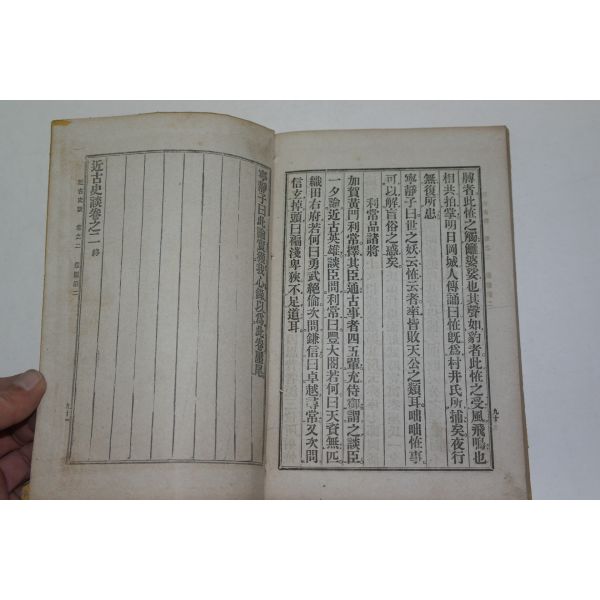 髆者此恠之觸籬婆娑也其聲如豹者此恠之受風飛鳴也
相共拍掌明日岡城人傳誦曰恠既爲村井氏所捕矣夜行
無復所患
寧靜子曰世之妖云恠云者率皆敗天公之類耳咄咄恠事
可以解盲俗之惑矣
利常品諸將
加賀黃門利常擇其臣通古事者四五輩充侍御謂之談臣
一夕論近古英雄談臣問利常曰豐大閤若何曰天資無匹
織田右府若何曰勇武絶倫次問鎌信曰卓越尋常又次問
信玄掉頭曰褊淺卑狹不足道耳
寧靜子曰此論實獲我心錄以爲此卷
近古史談卷之二 終